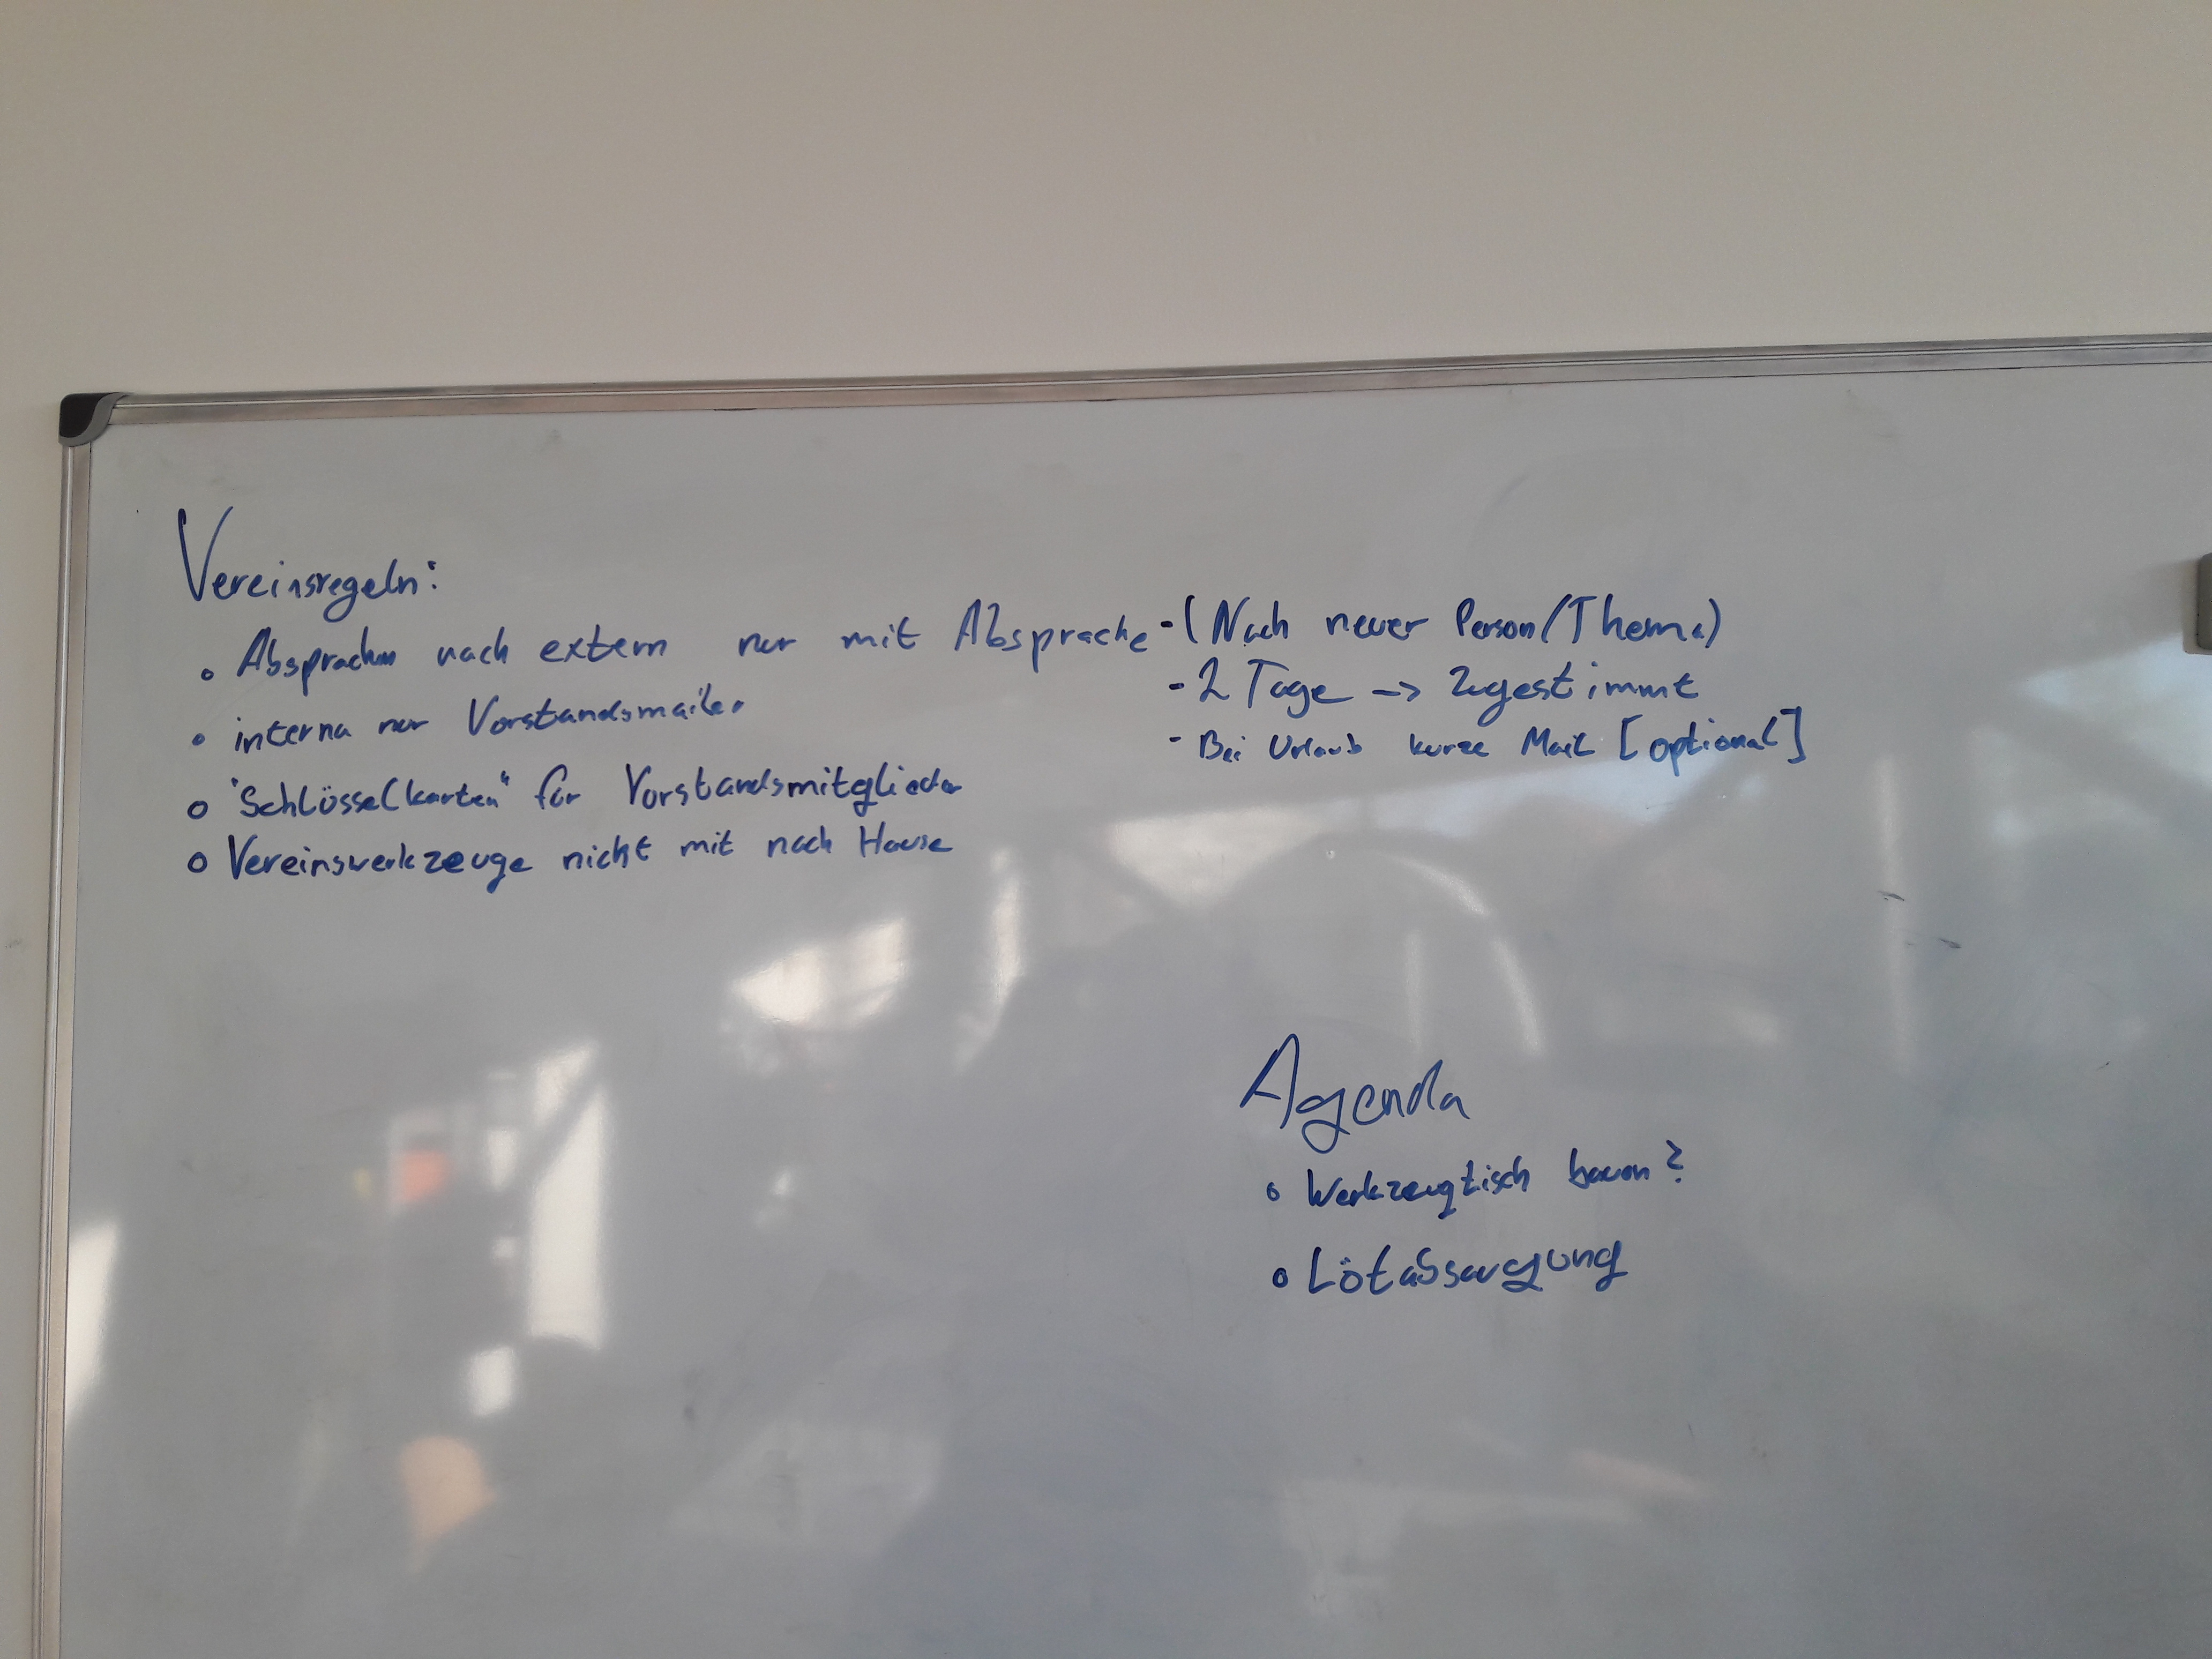 Vereinsregeln:
• Absprachen nach extern nur mit Absprache - (Nach neuer Person/Thema)
- 2 Tage -> Zugestimmt
- Bei Urlaub kurze Mail [optional]
• interna nur Vorstandsmailer
• "Schlüsselkarten" für Vorstandsmitglieder
• Vereinswerkzeuge nicht mit nach Hause
Agenda
• Werkzeugtisch bauen?
• Lötabsaugung